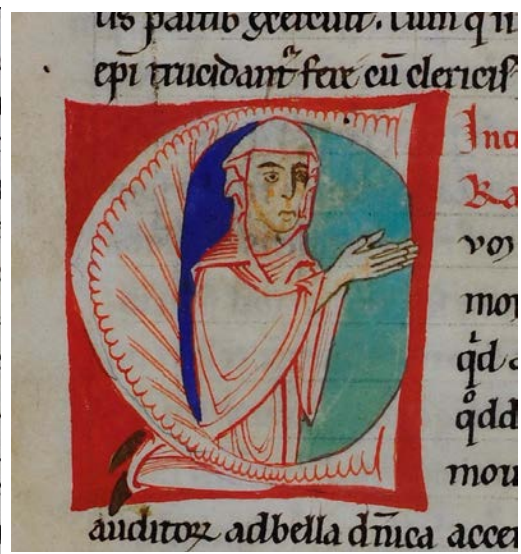 tis partib exercuit. Cum q
epi trucidant fere cū clericis
Inci
Ra
vos
mor
qd a
qdd
mou
auditoꝝ ad bella dn̄ica accen